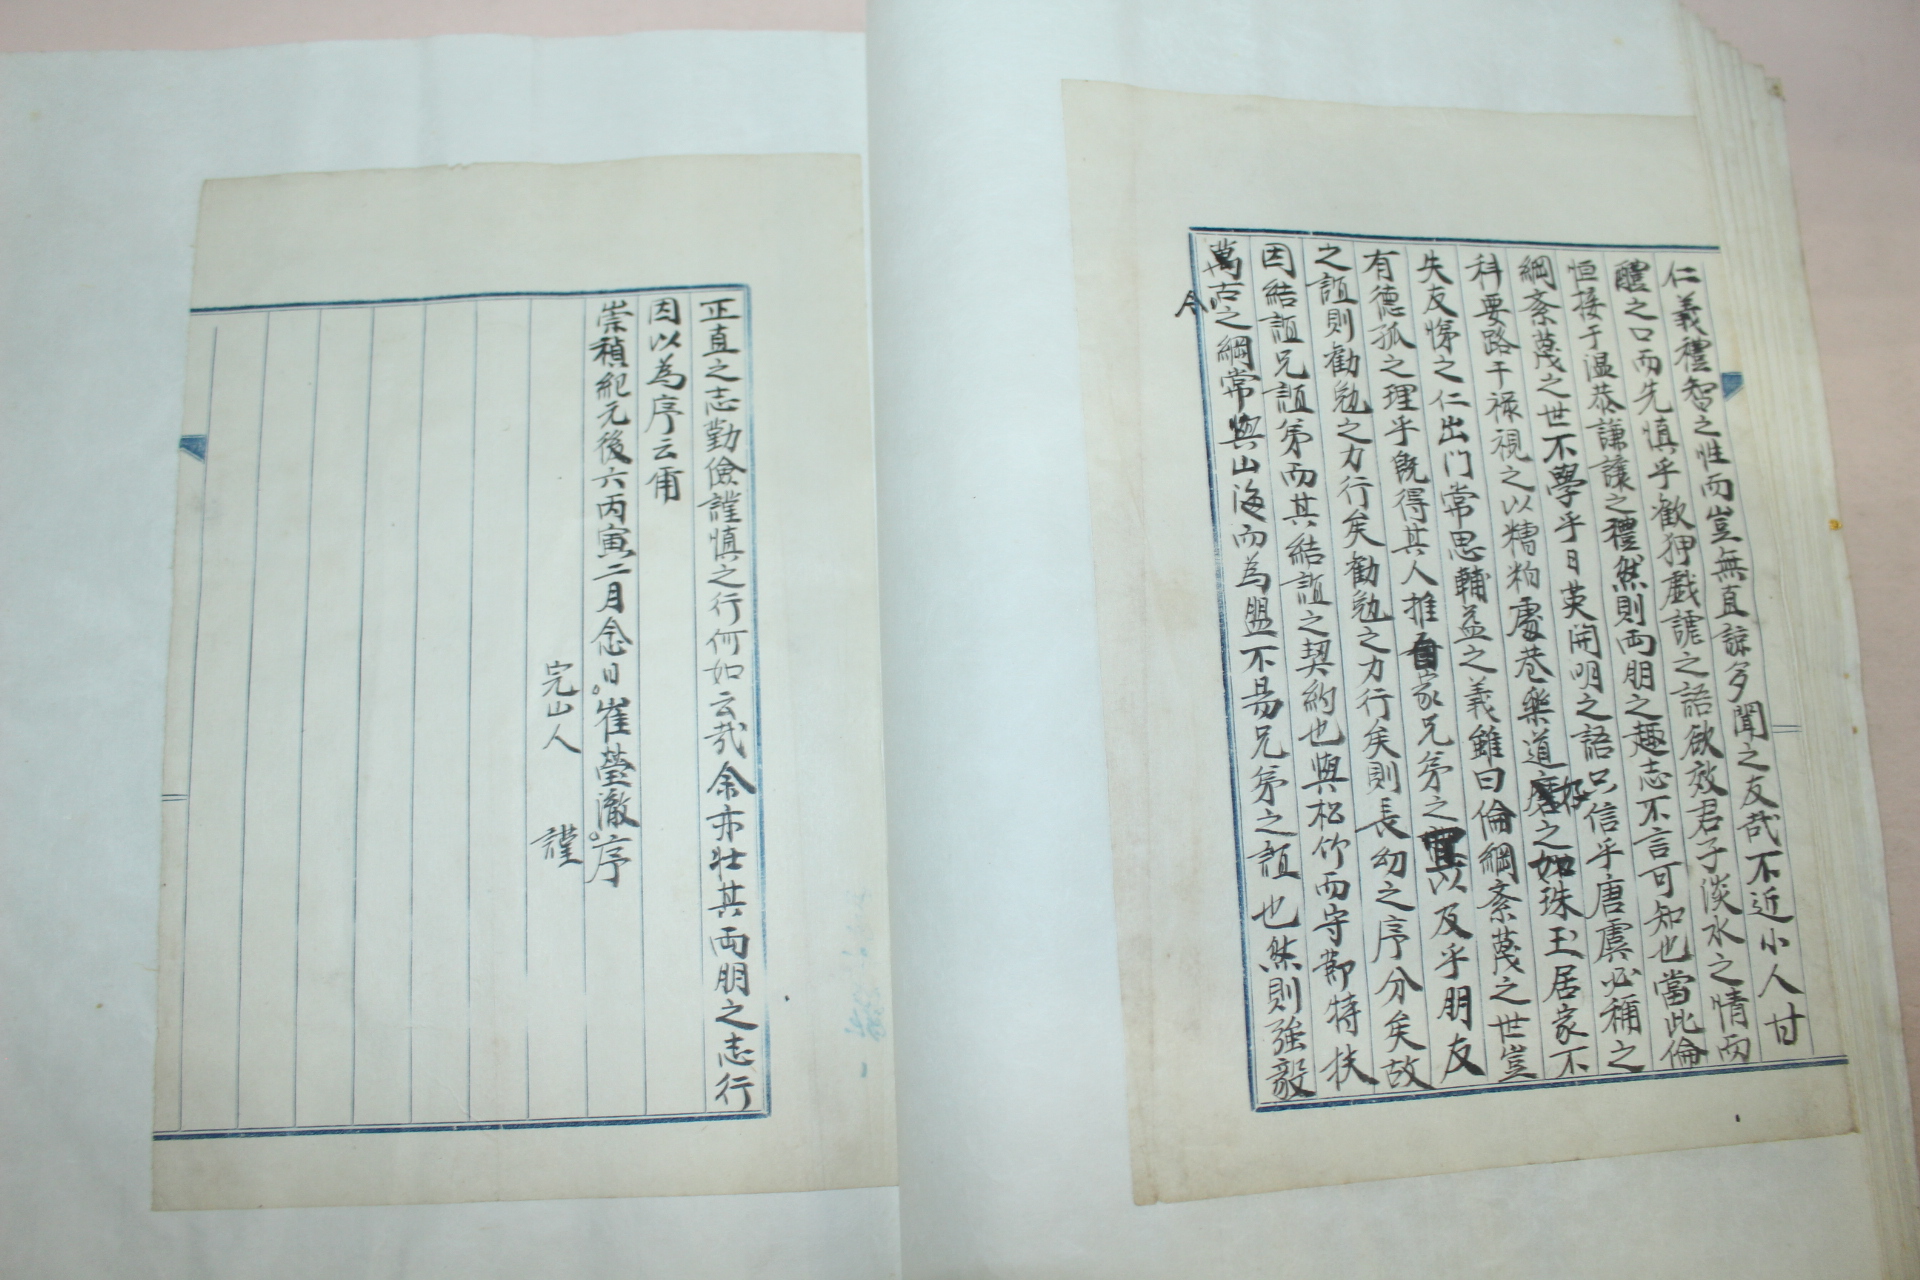 仁義禮智之性而豈無直諒多聞之友哉不近小人甘
醴之口而先慎乎歡狎戲謔之語欲效君子淡水之情而
恒接于温恭謙讓之禮然則両朋之趣志不言可知也當此倫
綱紊蔑之世不學乎日英開明之語只信乎唐虞必稱之
科要路干祿視之以糟粕處巷樂道好之如珠玉居家不
失友悌之仁出门常思輔益之義雖曰倫綱紊蔑之世豈
有德孤之理乎旣得其人推自家兄弟之誼以及乎朋友
之誼則勸勉之力行矣勸勉之力行矣則長幼之序分矣故
因結誼兄誼弟而其結誼之契約也與松竹而守節特扶
萬古今之綱常與山海而為盟不易兄弟之誼也然則強毅
正直之志勤儉謹慎之行何如云哉余亦壮其両朋之志行
因以為序云甭
崇禎紀元後六丙寅二月念日崔瑩澈序
完山人 謹